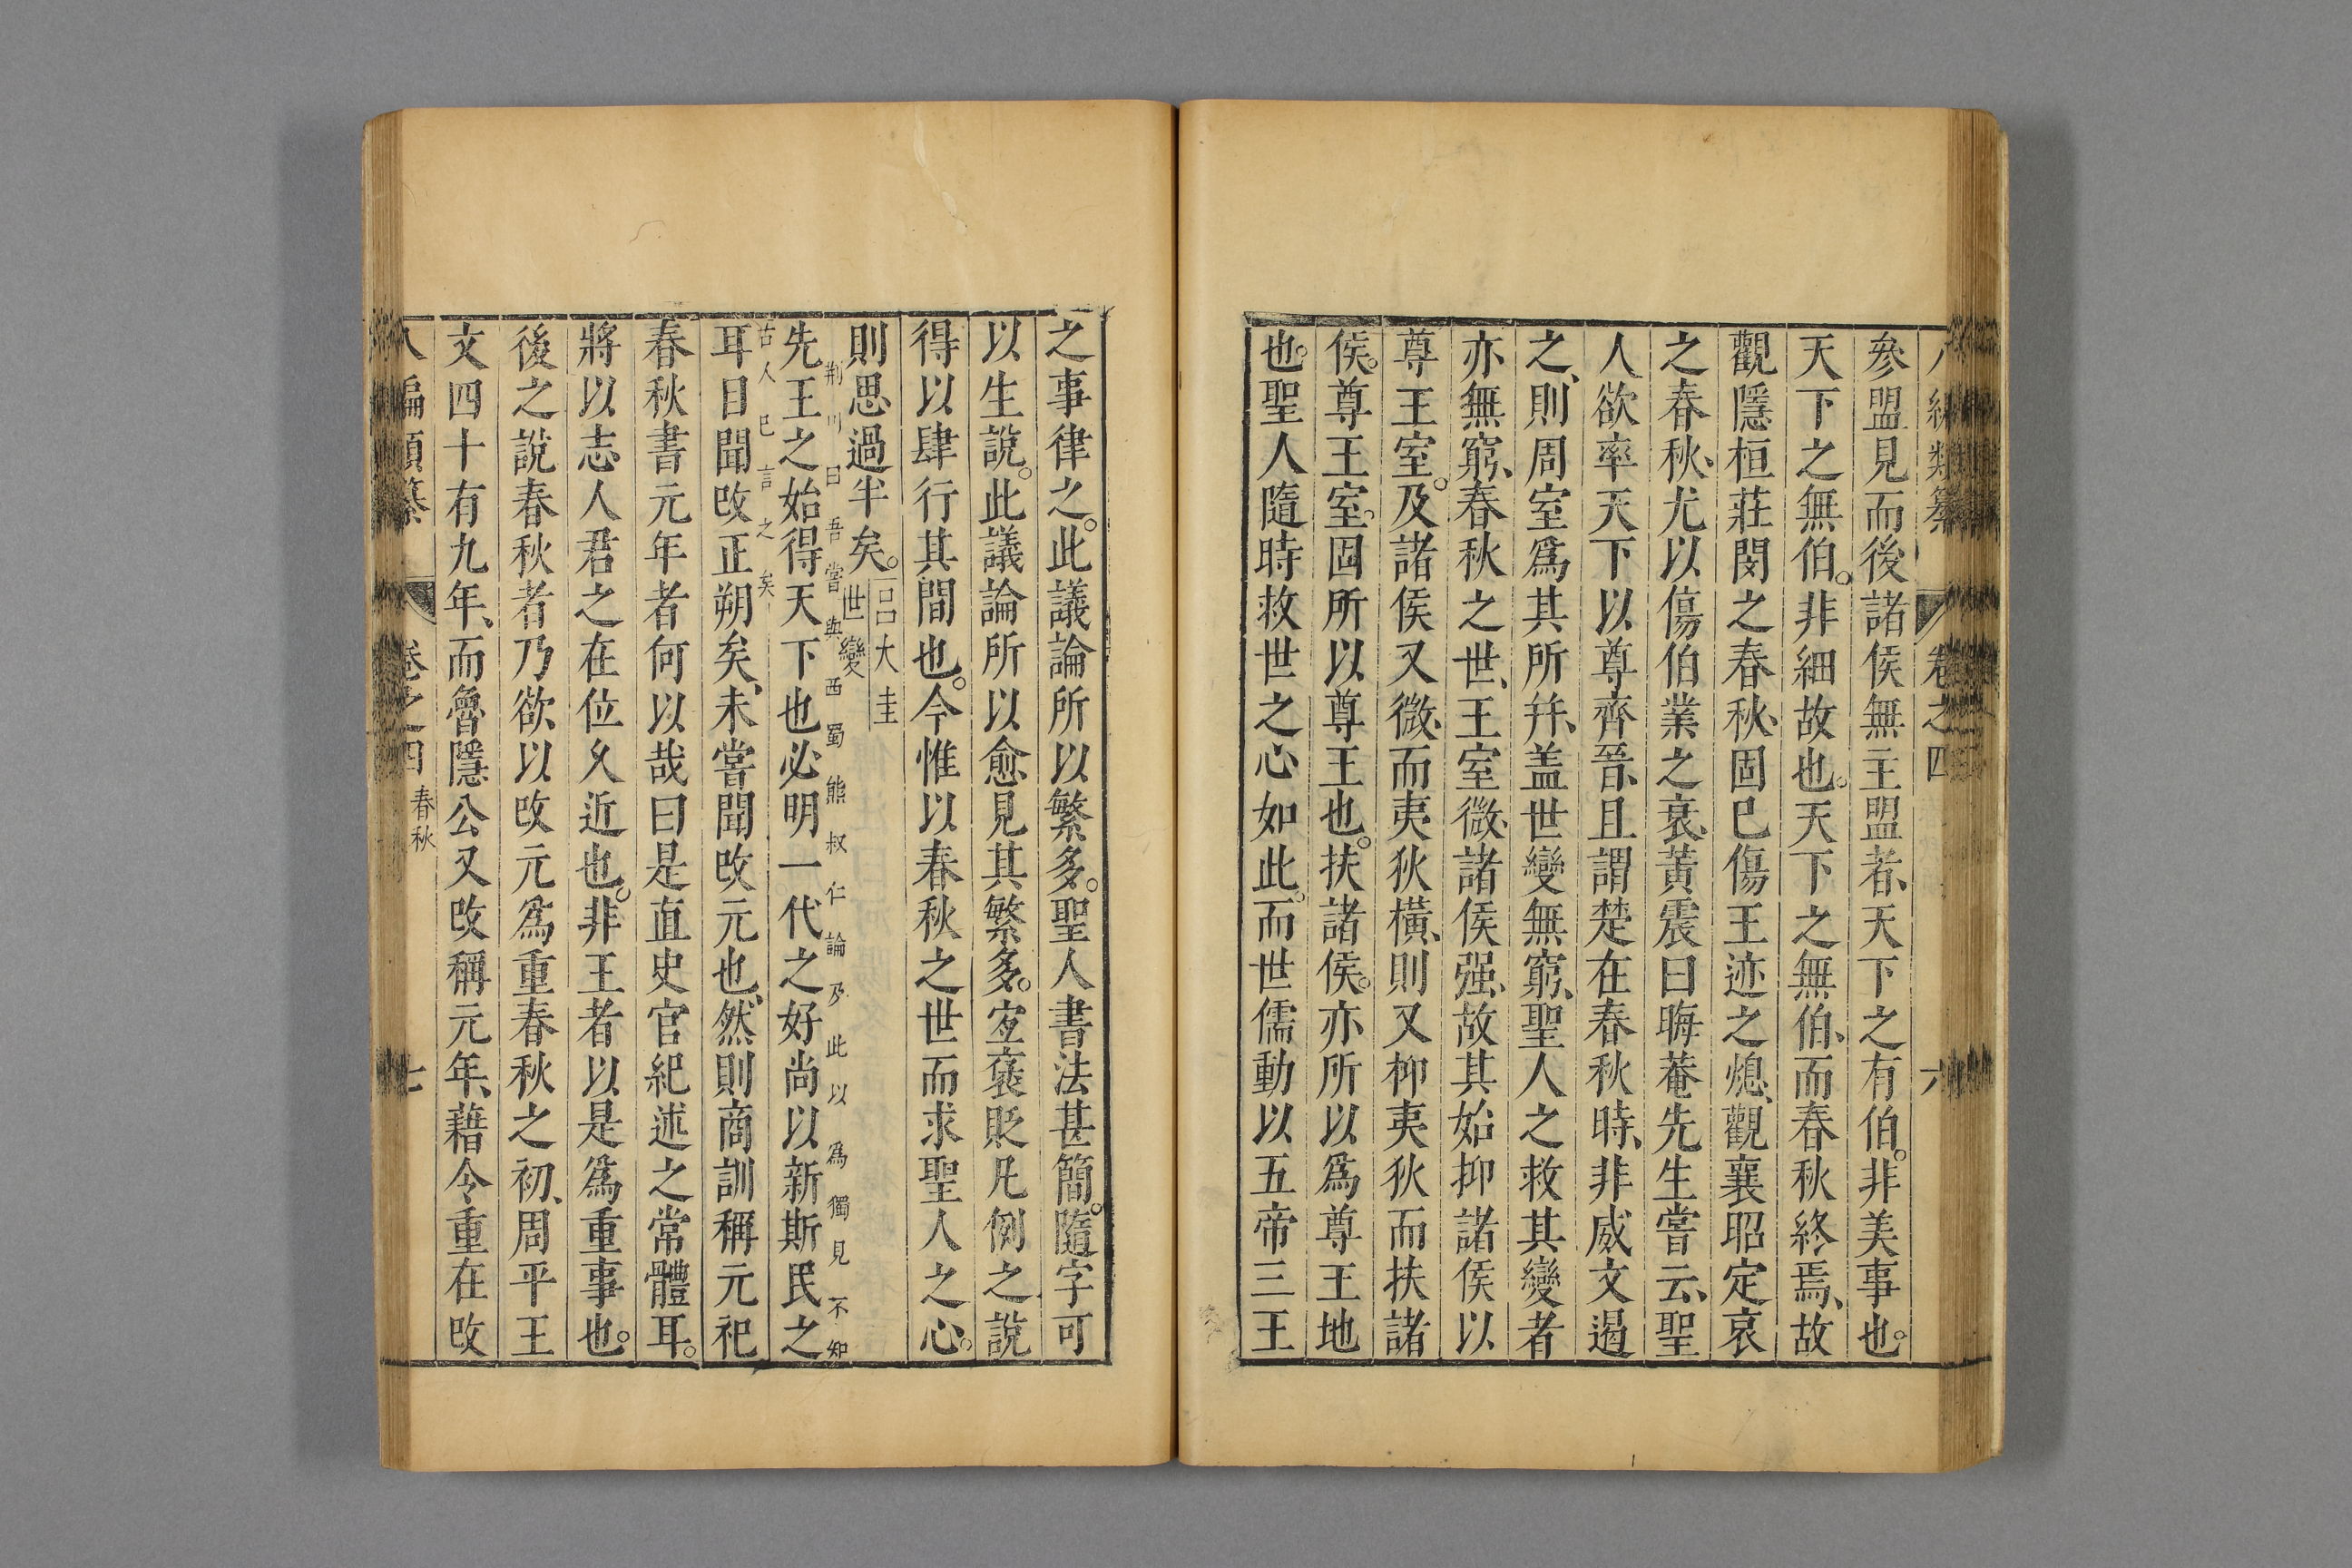 八編類纂 卷之四 六
參盟見而後諸侯無主盟者、天下之有伯。非美事也。
天下之無伯。非細故也。天下之無伯、而春秋終焉、故
觀隱桓莊閔之春秋、固巳傷王迹之熄、觀襄昭定哀
之春秋、尤以傷伯業之衰、黃震曰晦菴先生嘗云、聖
人欲率天下以尊齊晉、且謂楚在春秋時、非威文遏
之、則周室爲其所并、盖世變無窮、聖人之救其變者
亦無窮、春秋之世、王室微、諸侯强、故其始抑諸侯以
尊王室。及諸侯又微、而夷狄橫、則又抑夷狄而扶諸
侯。尊王室。固所以尊王也。扶諸侯。亦所以爲尊王地
也。聖人隨時救世之心如此。而世儒動以五帝三王
之事律之。此議論所以繁多。聖人書法甚簡。隨字可
以生說。此議論所以愈見其繁多。宜襃貶凡例之說
得以肆行其間也。今惟以春秋之世而求聖人之心。
則思過半矣。
呂大圭
世變
荆川曰吾嘗與西蜀熊叔仁論及此以爲獨見不知
古人巳言之矣
先王之始得天下也必明一代之好尚以新斯民之
耳目聞改正朔矣、未嘗聞改元也、然則商訓稱元祀
春秋書元年者何以哉曰是直史官紀述之常體耳。
將以志人君之在位久近也。非王者以是爲重事也。
後之說春秋者乃欲以改元爲重春秋之初、周平王
文四十有九年、而魯隱公又改稱元年、藉令重在改
八編類纂 卷之四 春秋 七